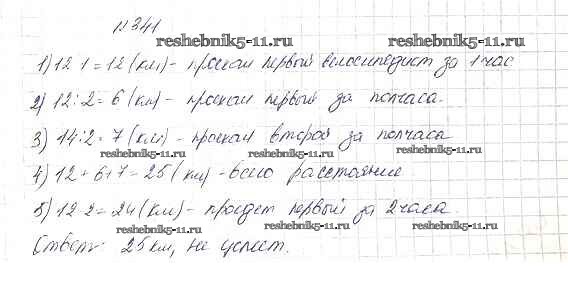 №341
reshebnik5-11.ru
1) 12·1=12 (км) - проехал первый велосипедист за 1 час
reshebnik5-11.ru
2) 12:2=6 (км) - проехал первый за полчаса.
3) 14:2=7 (км) - проехал второй за полчаса
reshebnik5-11.ru reshebnik5-11.ru reshebnik5-11.ru
4) 12+6+7=25 (км) - всего расстояние
5) 12·2=24 (км) - проедет первый за 2 часа
reshebnik5-11.ru reshebnik5-11.ru reshebnik5-11.ru
Ответ: 25 км, не успеет.